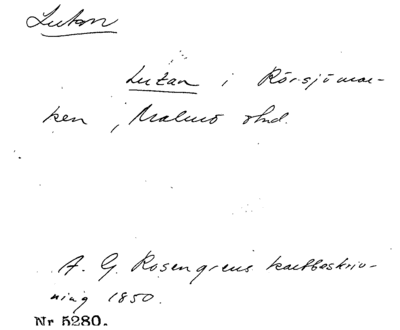 Lutan
Lutan i Rörsjömar-
ken, Malmö
A. G. Rosengrens kartbeskriv-
ning 1850.
Nr 5280.